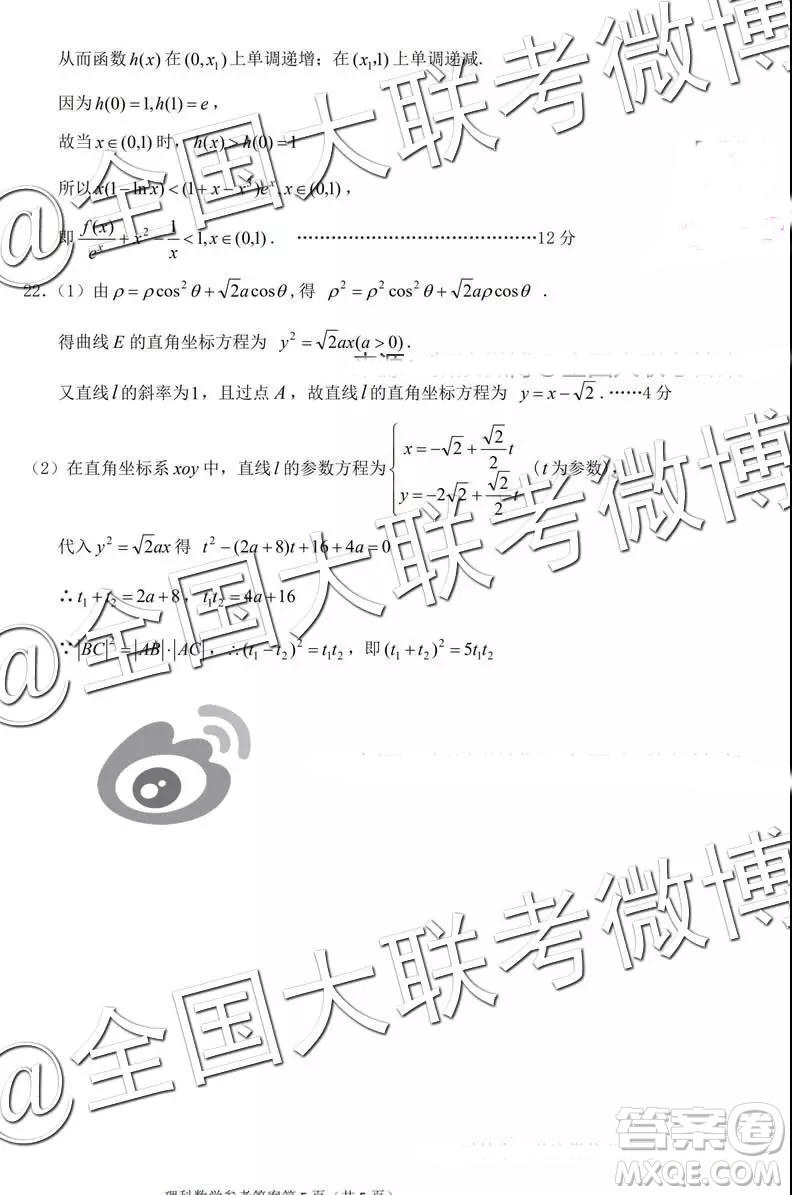 从而函数h(x)在(0,x₁)上单调递增；在(x₁,1)上单调递减.
因为h(0)=1,h(1)=e，
故当x∈(0,1)时，h(x)>h(0)=1
所以x(1−lnx)<(1+x−x³)eˣ,x∈(0,1)，
即f(x)/eˣ+x²−1/x<1,x∈(0,1). ……………………………………12分
22.（1）由ρ=ρcos²θ+√2acosθ,得 ρ²=ρ²cos²θ+√2aρcosθ .
得曲线E的直角坐标方程为 y²=√2ax(a>0).
又直线l的斜率为1，且过点A，故直线l的直角坐标方程为 y=x−√2.……4分
（2）在直角坐标系xoy中，直线l的参数方程为{x=−√2+√2/2t y=−2√2+√2/2t （t为参数），
代入y²=√2ax得 t²−(2a+8)t+16+4a=0
∴t₁+t₂=2a+8，t₁t₂=4a+16
∵|BC|²=|AB|·|AC|，∴(t₁−t₂)²=t₁t₂，即(t₁+t₂)²=5t₁t₂
@全国大联考微博
@全国大联考微博
@全国大联考微博
@全国大联考微博
答案圈
MXQE.COM
理科数学参考答案第5页（共5页）